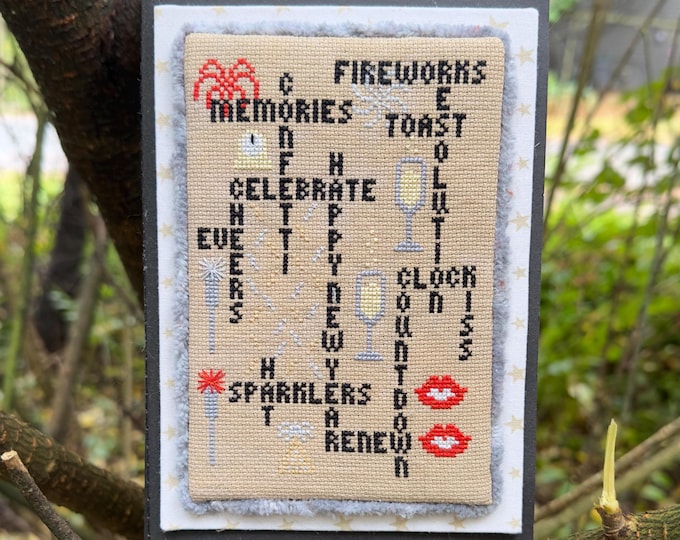 FIREWORKS
CONFETTI
MEMORIES
RESOLUTION
TOAST
HAPPYNEWYEAR
CELEBRATE
CHEERS
EVE
CLOCK
COUNTDOWN
KISS
HAT
SPARKLERS
RENEW